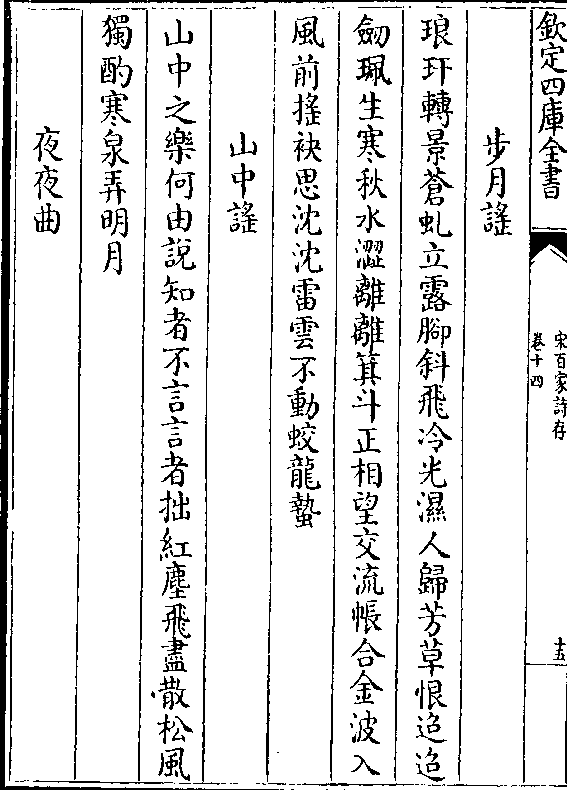 欽定四庫全書
宋百家詩存
卷十四
十五
步月謠
琅玕轉景蒼虬立露腳斜飛冷光濕人歸芳草恨迢迢
劒珮生寒秋水澀離離箕斗正相望交流帳合金波入
風前搖袂思沈沈雷雲不動蛟龍蟄
山中謠
山中之樂何由說知者不言言者拙紅塵飛盡散松風
獨酌寒泉弄明月
夜夜曲